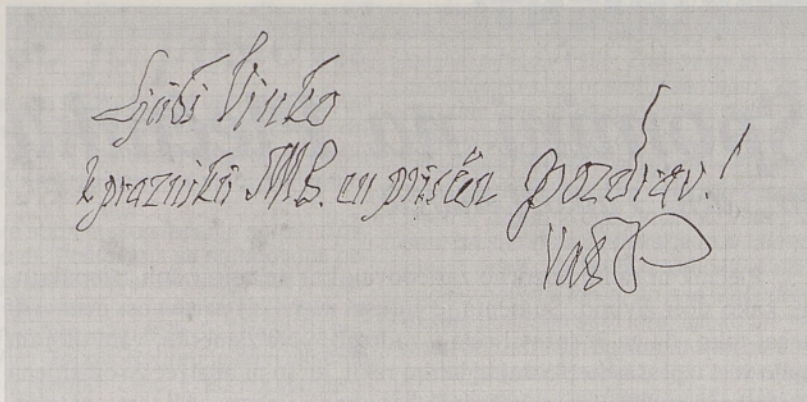 Ljubi Vinko
k prazniku MB. en prisčn pozdrav!
Vaš P